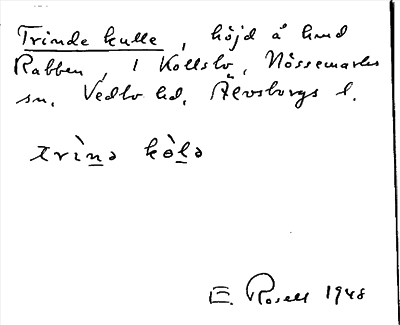 Trinde kulle, höjd å hmd
Rabben, i Kollsbo, Nössemarks
sn, Vedbo hd, Älvsborgs l.
trìnə kòlə
E. Rosell 1948